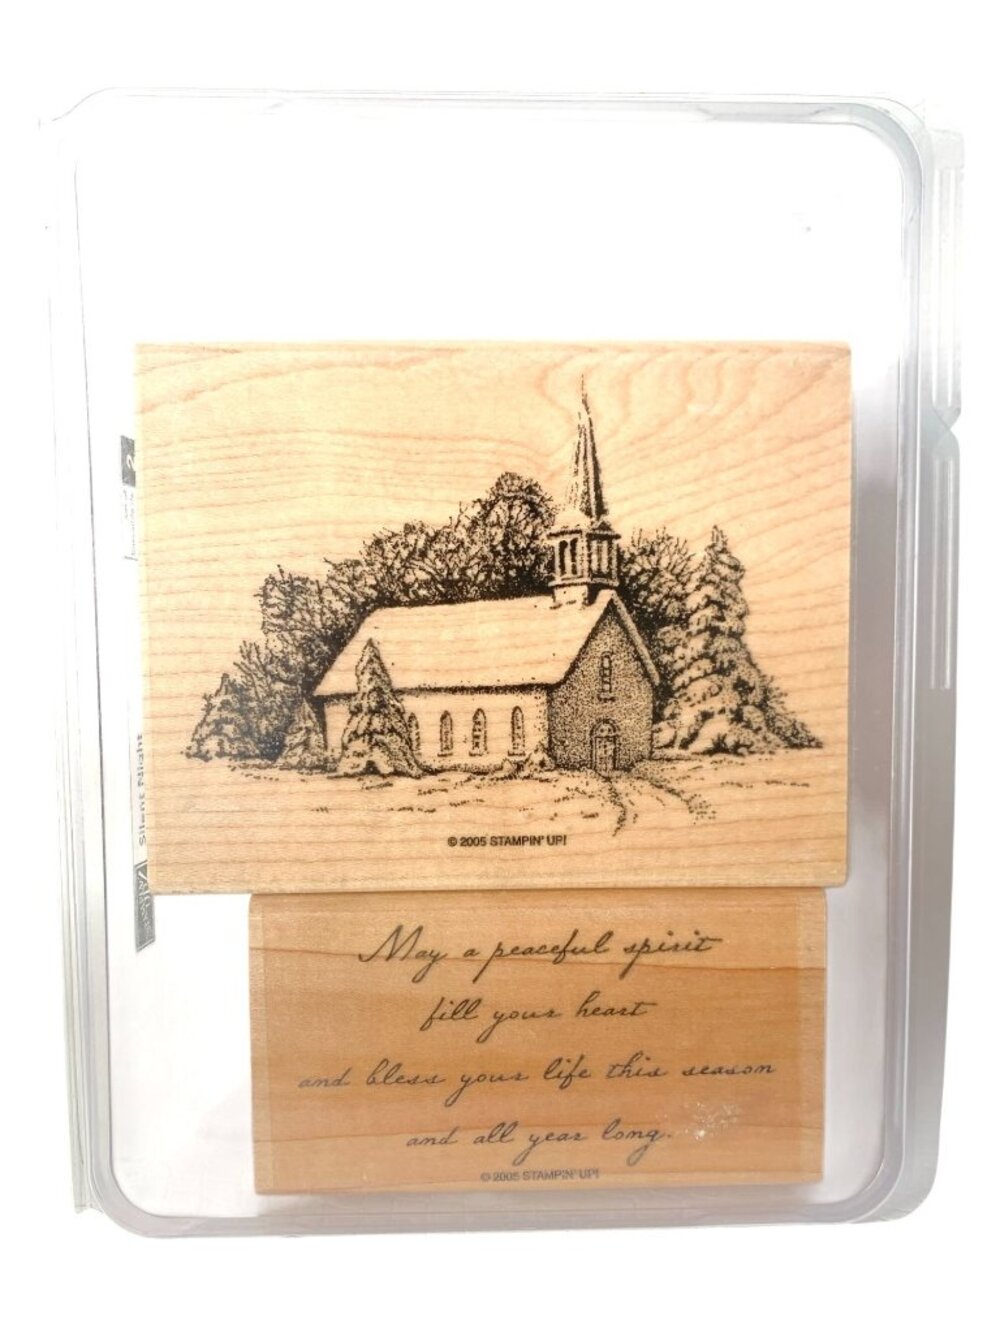 © 2005 STAMPIN' UP!
May a peaceful spirit
fill your heart
and bless your life this season
and all year long.
© 2005 STAMPIN' UP!
Silent Night
2